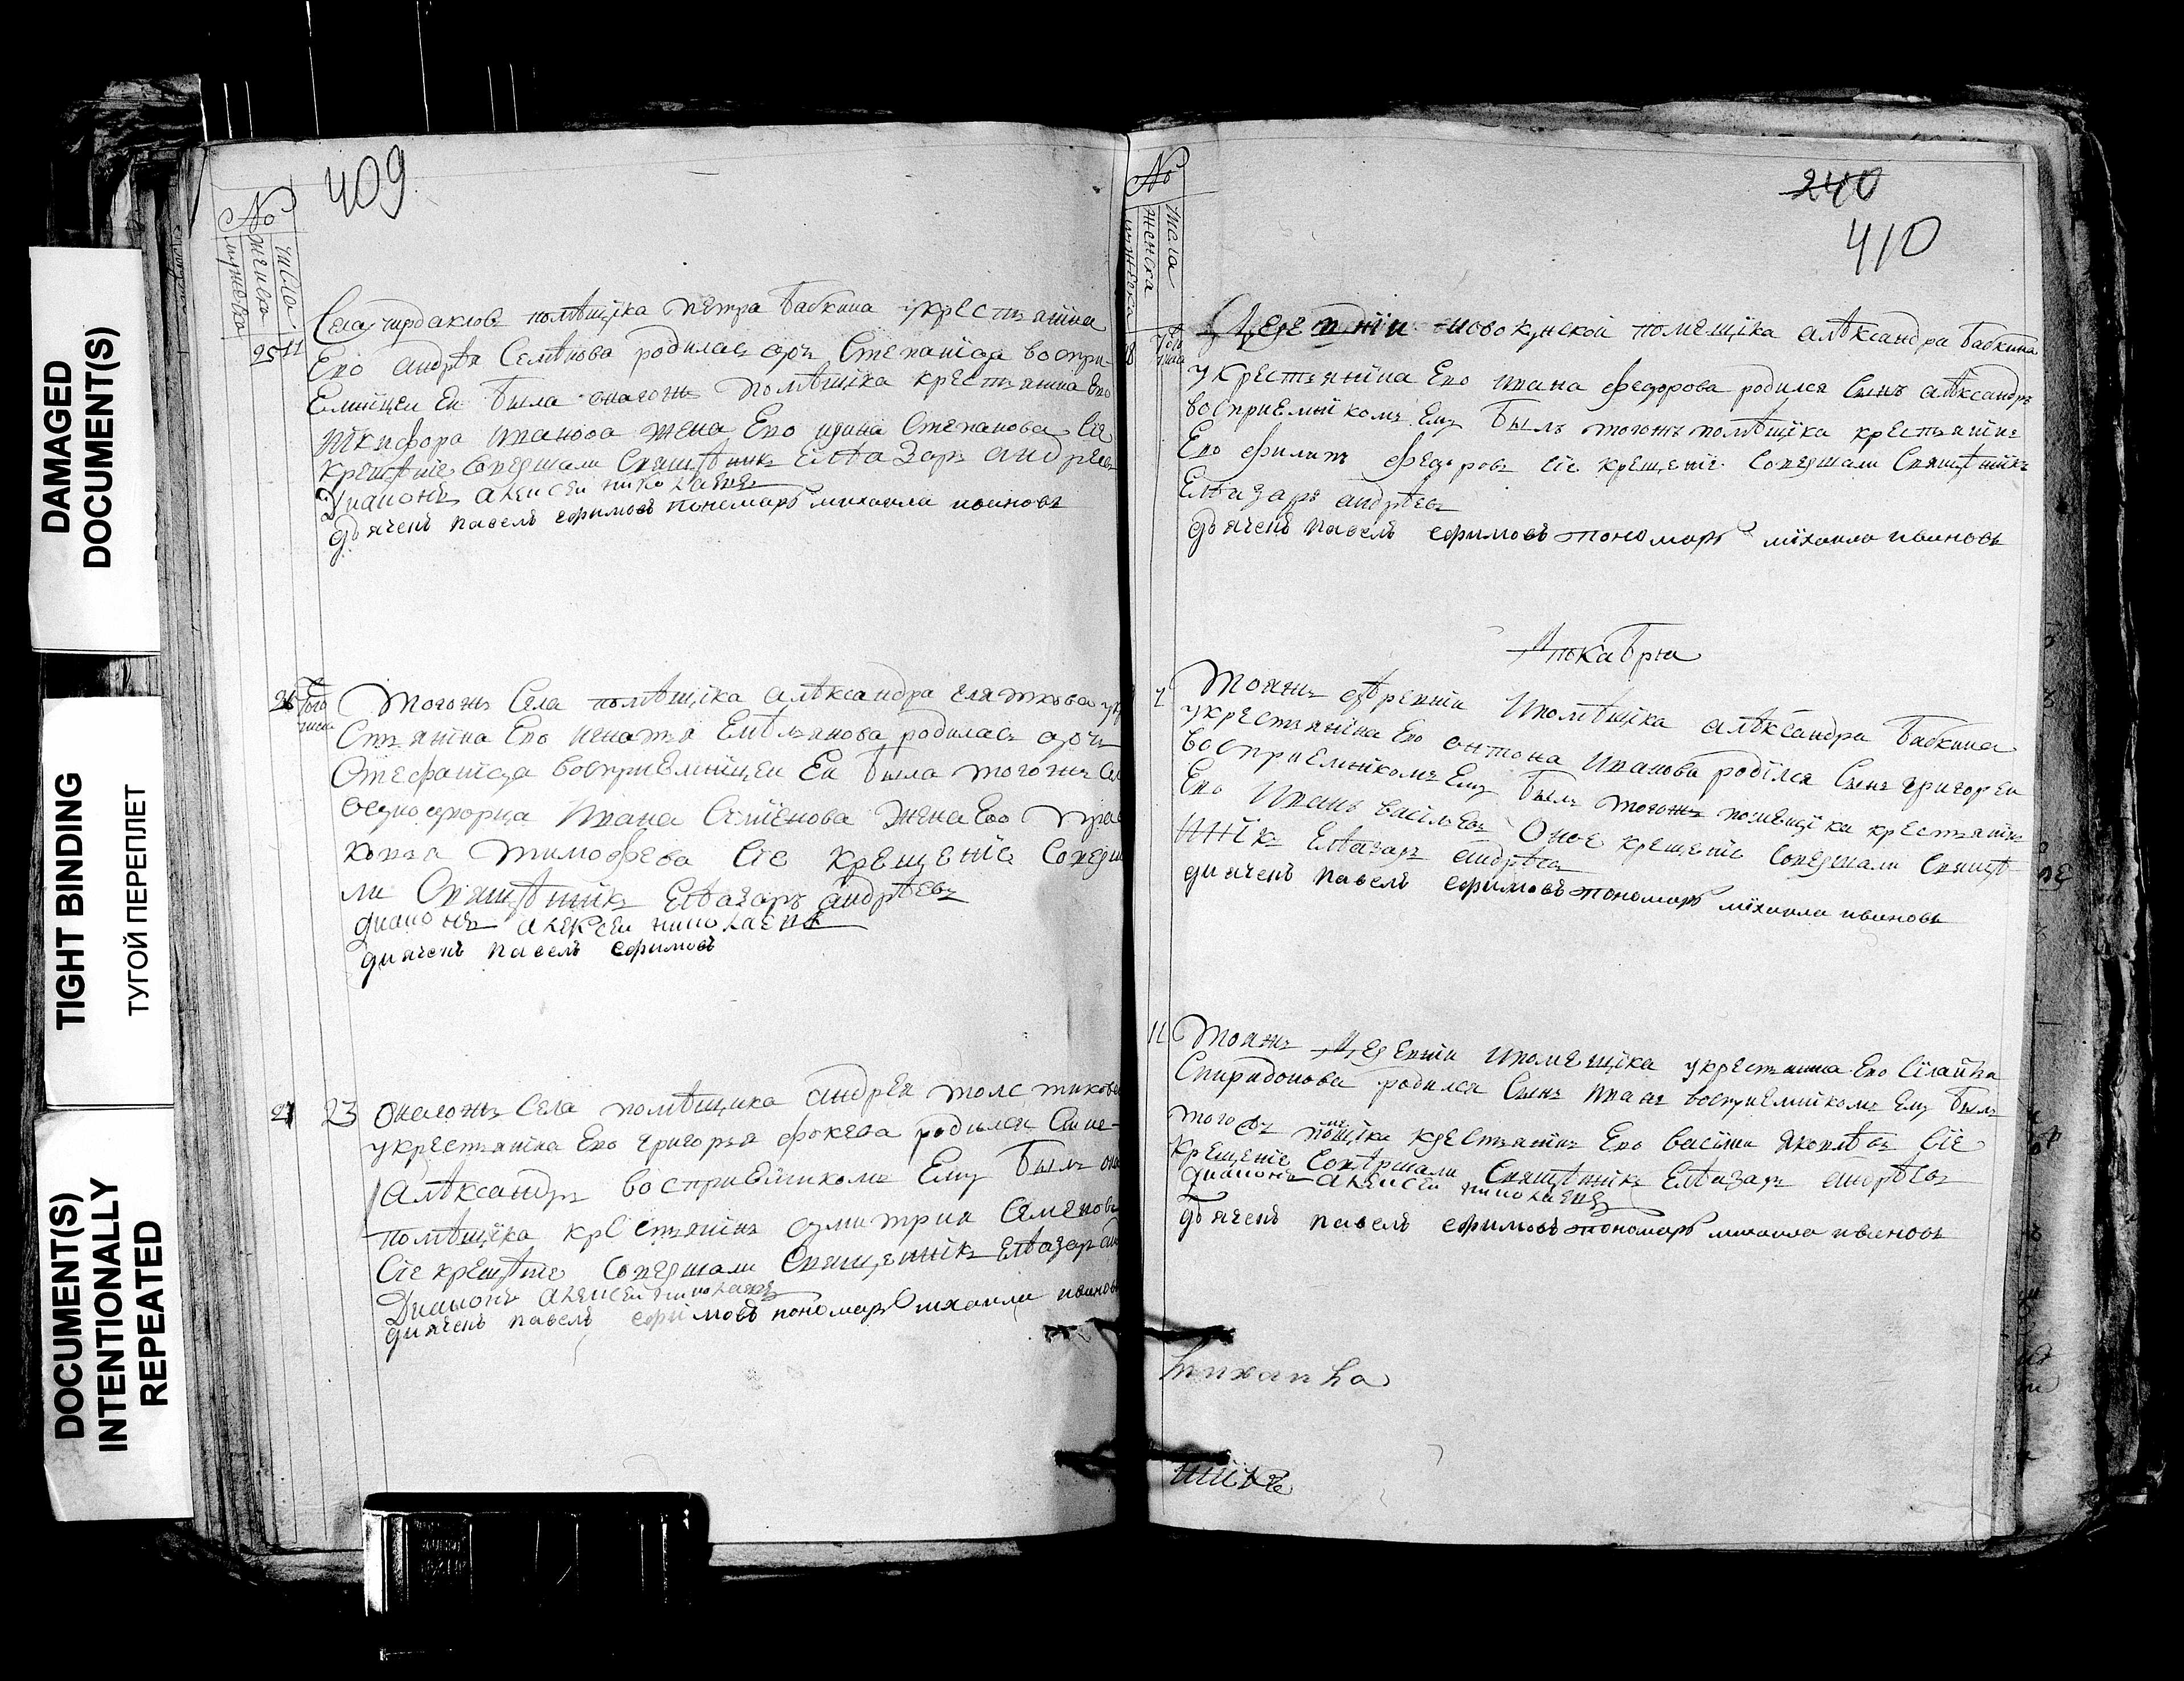 DAMAGED
DOCUMENT(S)
TIGHT BINDING
ТУГОЙ ПЕРЕПЛЕТ
DOCUMENT(S)
INTENTIONALLY
REPEATED
409
№
числа
женска
мужеска
25 11
Села помѣщика петра бабкина укрестьянина
Ево андрея Семѣнова родилась дочь Степанида воспри-
Емницеи Еи была онагожъ помѣщика крестьянина Ево
никифора иванова жена Ево ирина Степанова Сие
крещѣние Совершали Священникъ Елѣазаръ андреевъ
Диаконъ алексеи николаевъ
дьячекъ павелъ ефимовъ пономарь михаила ивановъ
26 того числа
Тогожъ Села помѣщика алѣксандра укре
стьянина Ево игнатья Емѣльянова родилась дочь
Стефанида восприемницеи Еи была тогожъ Села
однодворца Ивана Семенова жена Ево
тимофѣева Сие крещенiе Соверша
ли Священникъ Елѣазаръ андрѣевъ
диаконъ алексеи николаевъ
диячекъ павелъ ефимовъ
27 23
Оногожъ Села помѣщика андрея
укрестьянина Ево григорья фокеева родился Сынъ
Алѣксандръ восприемникомъ Ему былъ
помѣщика крестьянинъ дмитрии Семенов
Сie крещѣние Совершали Священникъ Елѣазаръ
Диаконъ алексеи николаевъ
диячекъ павелъ ефимовъ пономарь михаила ивановъ
240
410
№
числа
женска
мужеска
8 того числа
Деревни помещiка алѣксандра бабкина
укрестьянiна Ево ивана федорова родился Сынъ алѣксандръ
восприемникомъ Ему былъ тогожъ помѣщiка крестьянинъ
Ево филипъ федоровъ сiе крещенiе Совершали Священникъ
Елѣазаръ андрѣевъ
дьячекъ павелъ ефимовъ пономарь мiхаила ивановъ
Декабря
7
Тояжъ деревни Ипомѣщiка алѣксандра бабкина
укрестьянiна Ево антона Иванова родiлся Сынъ григореи
восприемнiкомъ Ему былъ тогожъ помещiка крестьянинъ
Ево Иванъ васiльевъ Оное крещенiе Совершали Священ-
нiкъ Елѣазаръ андрѣевъ
диячекъ павелъ ефимовъ пономарь мiхаила ивановъ
11
Тояжъ Деревни Ипомещiка укрестьянина Ево
Спиридонова родился Сынъ Иванъ восприемникомъ Ему былъ
тогожъ помѣщiка крестьянинъ Ево васiлiи яковлѣвъ Сiе
крещенiе Совершали Священникъ Елѣазаръ андрѣевъ
диаконъ алексеи николаевъ
дьячекъ павелъ ефимовъ пономарь михаила ивановъ
михаила